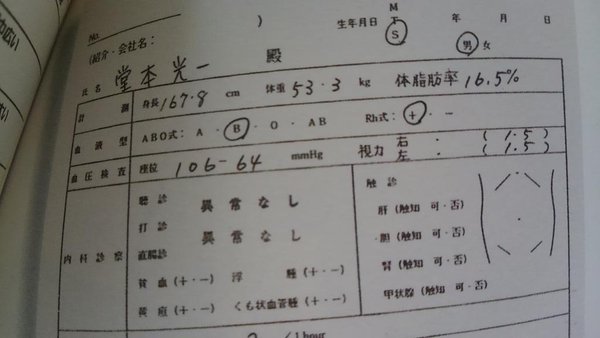 No.
(紹介・会社名： )
生年月日 M T S 年 月 日
氏名 堂本光一 殿 男 女
計測 身長 167.8 cm 体重 53.3 kg 体脂肪率 16.5%
血液型 ABO式： A ・ B ・ O ・ AB Rh式： + ・ －
血圧検査 座位 106-64 mmHg 視力 右 ． ( 1.5 )
左 ． ( 1.5 )
内科診察 聴診 異常なし 触診
打診 異常なし 肝 (触知 可・否)
直腸診 胆 (触知 可・否)
貧血 (＋・－) 浮腫 (＋・－) 腎 (触知 可・否)
黄疸 (＋・－) くも状血管腫 (＋・－) 甲状腺 (触知 可・否)
/1 hour